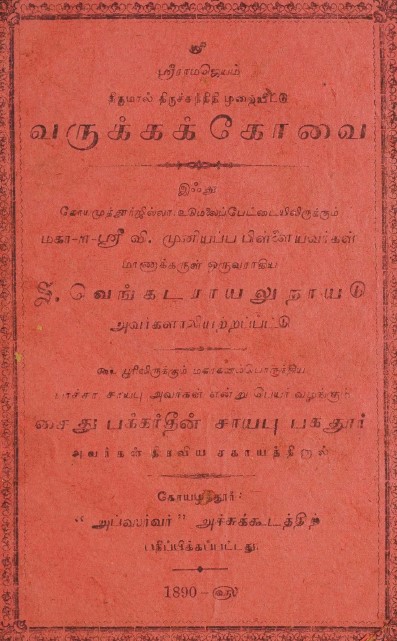 ஸ்ரீ
ஸ்ரீராமஜெயம்
திருமால் திருச்சந்நிதி முறையீட்டு
வருக்கக்கோவை
இஃது
கோயமுத்தூர்ஜில்லா உடுமலைப்பேட்டையிலிருக்கும்
மகா-ள-ஸ்ரீ வி. முனியப்ப பிள்ளையவர்கள்
மாணாக்கருள் ஒருவராகிய
வெங்கடராயலுநாயடு
அவர்களாலியற்றப்பட்டு
பூரிலிருக்கும்
பாச்சா சாயபு அவர்கள் என்று பெயர் வழங்கும்
சைது பக்கர்தீன் சாயபு பகதூர்
அவர்கள் திரவிய சகாயத்தினால்
கோயமுத்தூர்:
"அப்ஸர்வர்" அச்சுக்கூடத்திற்
பதிப்பிக்கப்பட்டது.
1890 - ௵